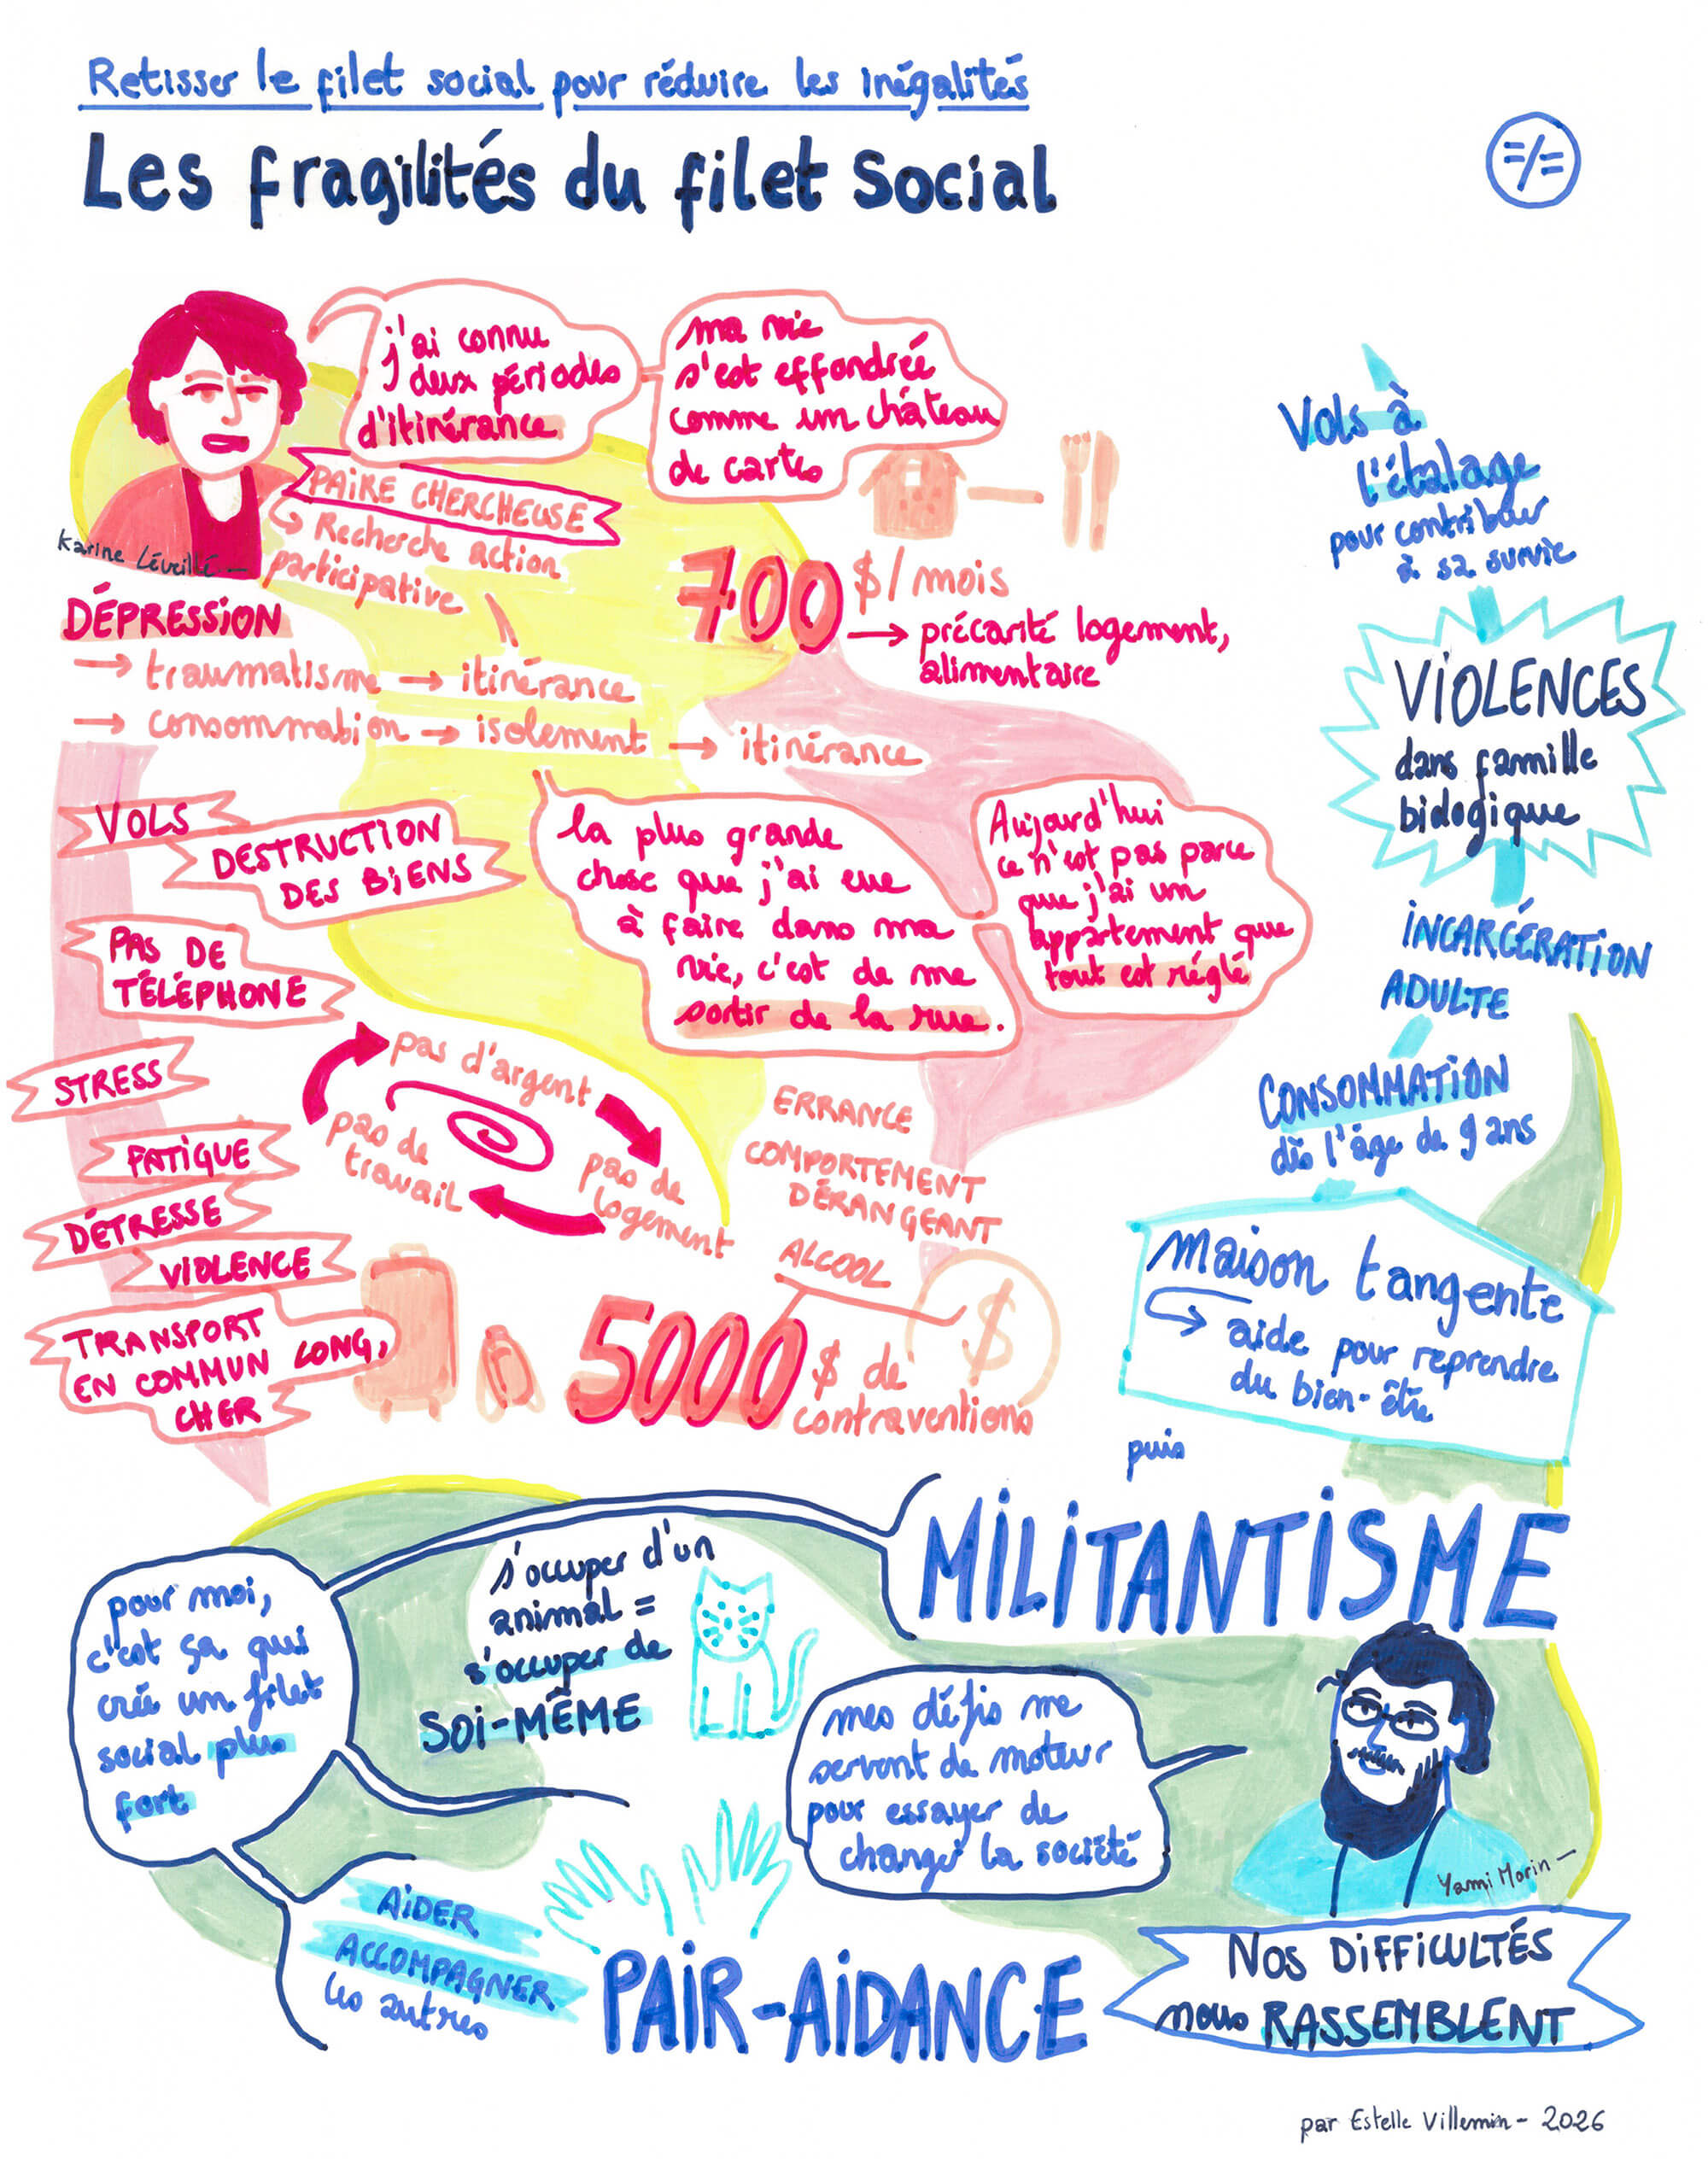 Retisser le filet social pour réduire les inégalités
Les fragilités du filet Social
=/=
j'ai connu
deux périodes
d'itinérance
ma vie
s'est effondrée
comme un château
de cartes
PAIRE CHERCHEUSE
Recherche action
participative
Karine Léveillé
700 $/mois
→ précarité logement,
alimentaire
DÉPRESSION
→ traumatisme → itinérance
→ consommation → isolement → itinérance
VOLS
DESTRUCTION
DES BIENS
PAS DE
TÉLÉPHONE
STRESS
FATIGUE
DÉTRESSE
VIOLENCE
TRANSPORT
EN COMMUN LONG,
CHER
la plus grande
chose que j'ai eue
à faire dans ma
vie, c'est de me
sortir de la rue.
Aujourd'hui
ce n'est pas parce
que j'ai un
appartement que
tout est réglé
pas d'argent
pas de
logement
pas de
travail
ERRANCE
COMPORTEMENT
DÉRANGEANT
ALCOOL
$
5000 $ de
contraventions
Vols à
l'étalage
pour contribuer
à sa survie
VIOLENCES
dans famille
biologique
INCARCÉRATION
ADULTE
CONSOMMATION
dès l'âge de 9 ans
maison tangente
aide pour reprendre
du bien-être
puis
MILITANTISME
pour moi,
c'est ça qui
crée un filet
social plus
fort
s'occuper d'un
animal =
s'occuper de
SOI-MÊME
mes défis me
servent de moteur
pour essayer de
changer la société
Yami Morin
AIDER
ACCOMPAGNER
les autres
PAIR-AIDANCE
NOS DIFFICULTÉS
nous RASSEMBLENT
par Estelle Villemin - 2026